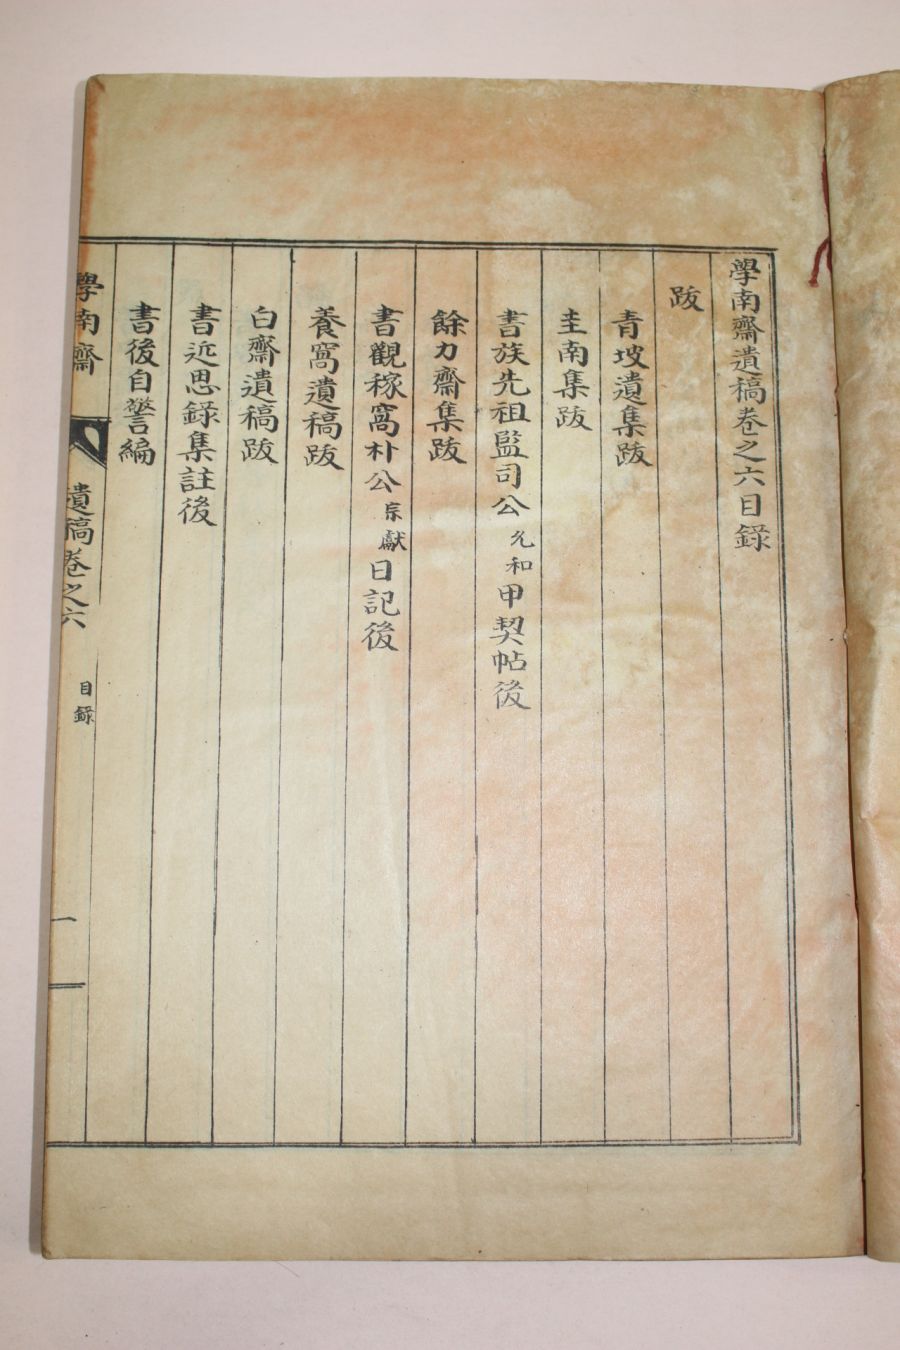 學南齋遺稿卷之六目錄
跋
青坡遺集跋
圭南集跋
書族先祖監司公允和甲契帖後
餘力齋集跋
書觀稼窩朴公宗獻日記後
養窩遺稿跋
白齋遺稿跋
書近思錄集註後
書後自警編
學南齋 遺稿卷之六 目錄 一